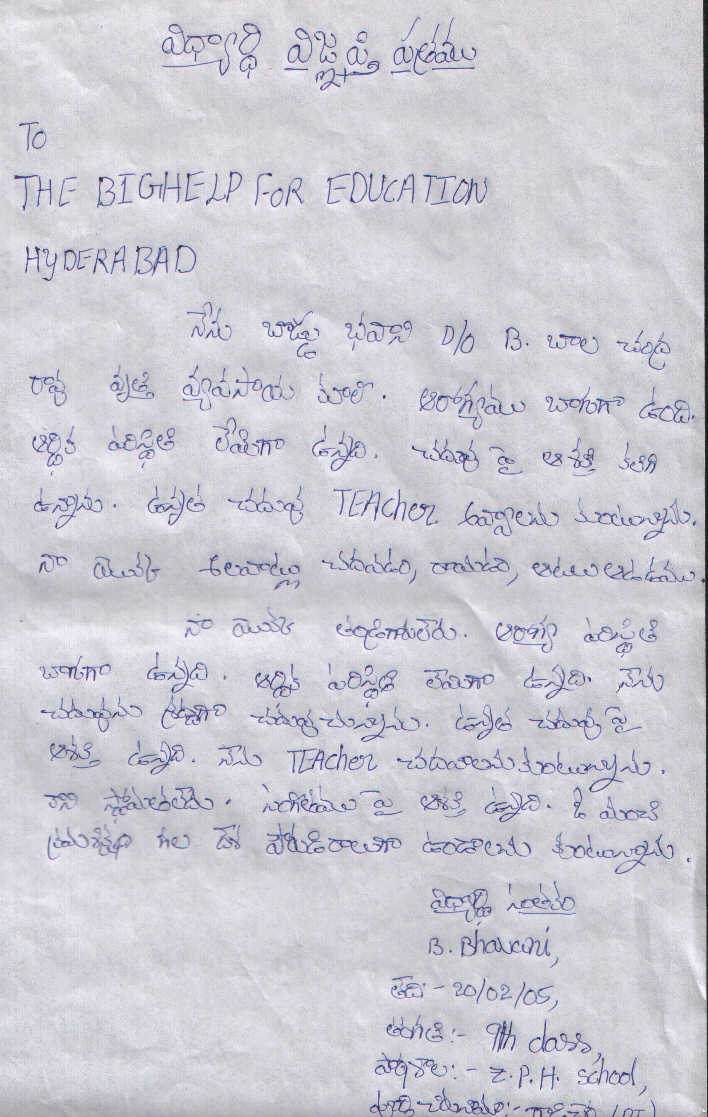 విద్యార్థి విజ్ఞప్తి పత్రము
TO
THE BIGHELP FOR EDUCATION
HYDERABAD
నేను బొడ్డు భవాని D/O B. బాల చంద్ర
రావు వృత్తి వ్యవసాయ కూలి. ఆరోగ్యము బాగుగా ఉంది.
ఆర్థిక పరిస్థితి లేమిగా ఉన్నది. చదువు పై ఆశక్తి కలిగి
ఉన్నాను. ఉన్నత చదువు TEAcher అవ్వాలను కుంటున్నాను.
నా యొక్క అలవాట్లు చదవడం, రాయడం, ఆటలు ఆడడము.
నా యొక్క తండ్రిగారులేరు. ఆరోగ్య పరిస్థితి
బాగుగా ఉన్నది. ఆర్థిక పరిస్థితి లేమిగా ఉన్నది. నేను
చదువును శ్రద్ధగా చదువుచున్నాను. ఉన్నత చదువు పై
ఆశక్తి ఉన్నది. నేను TEAcher చదవాలనుకుంటున్నాను.
కాని స్తోమతలేదు. సంగీతము పై ఆశక్తి ఉన్నది. ఓ మంచి
క్రమశిక్షణ గల దేశ పౌరురాలుగా ఉండాలను కుంటున్నాను.
విద్యార్థి సంతకం
B. Bhavani,
తేది:- 20/02/05,
తరగతి:- 9th class,
పాఠశాల:- Z.P.H. school,